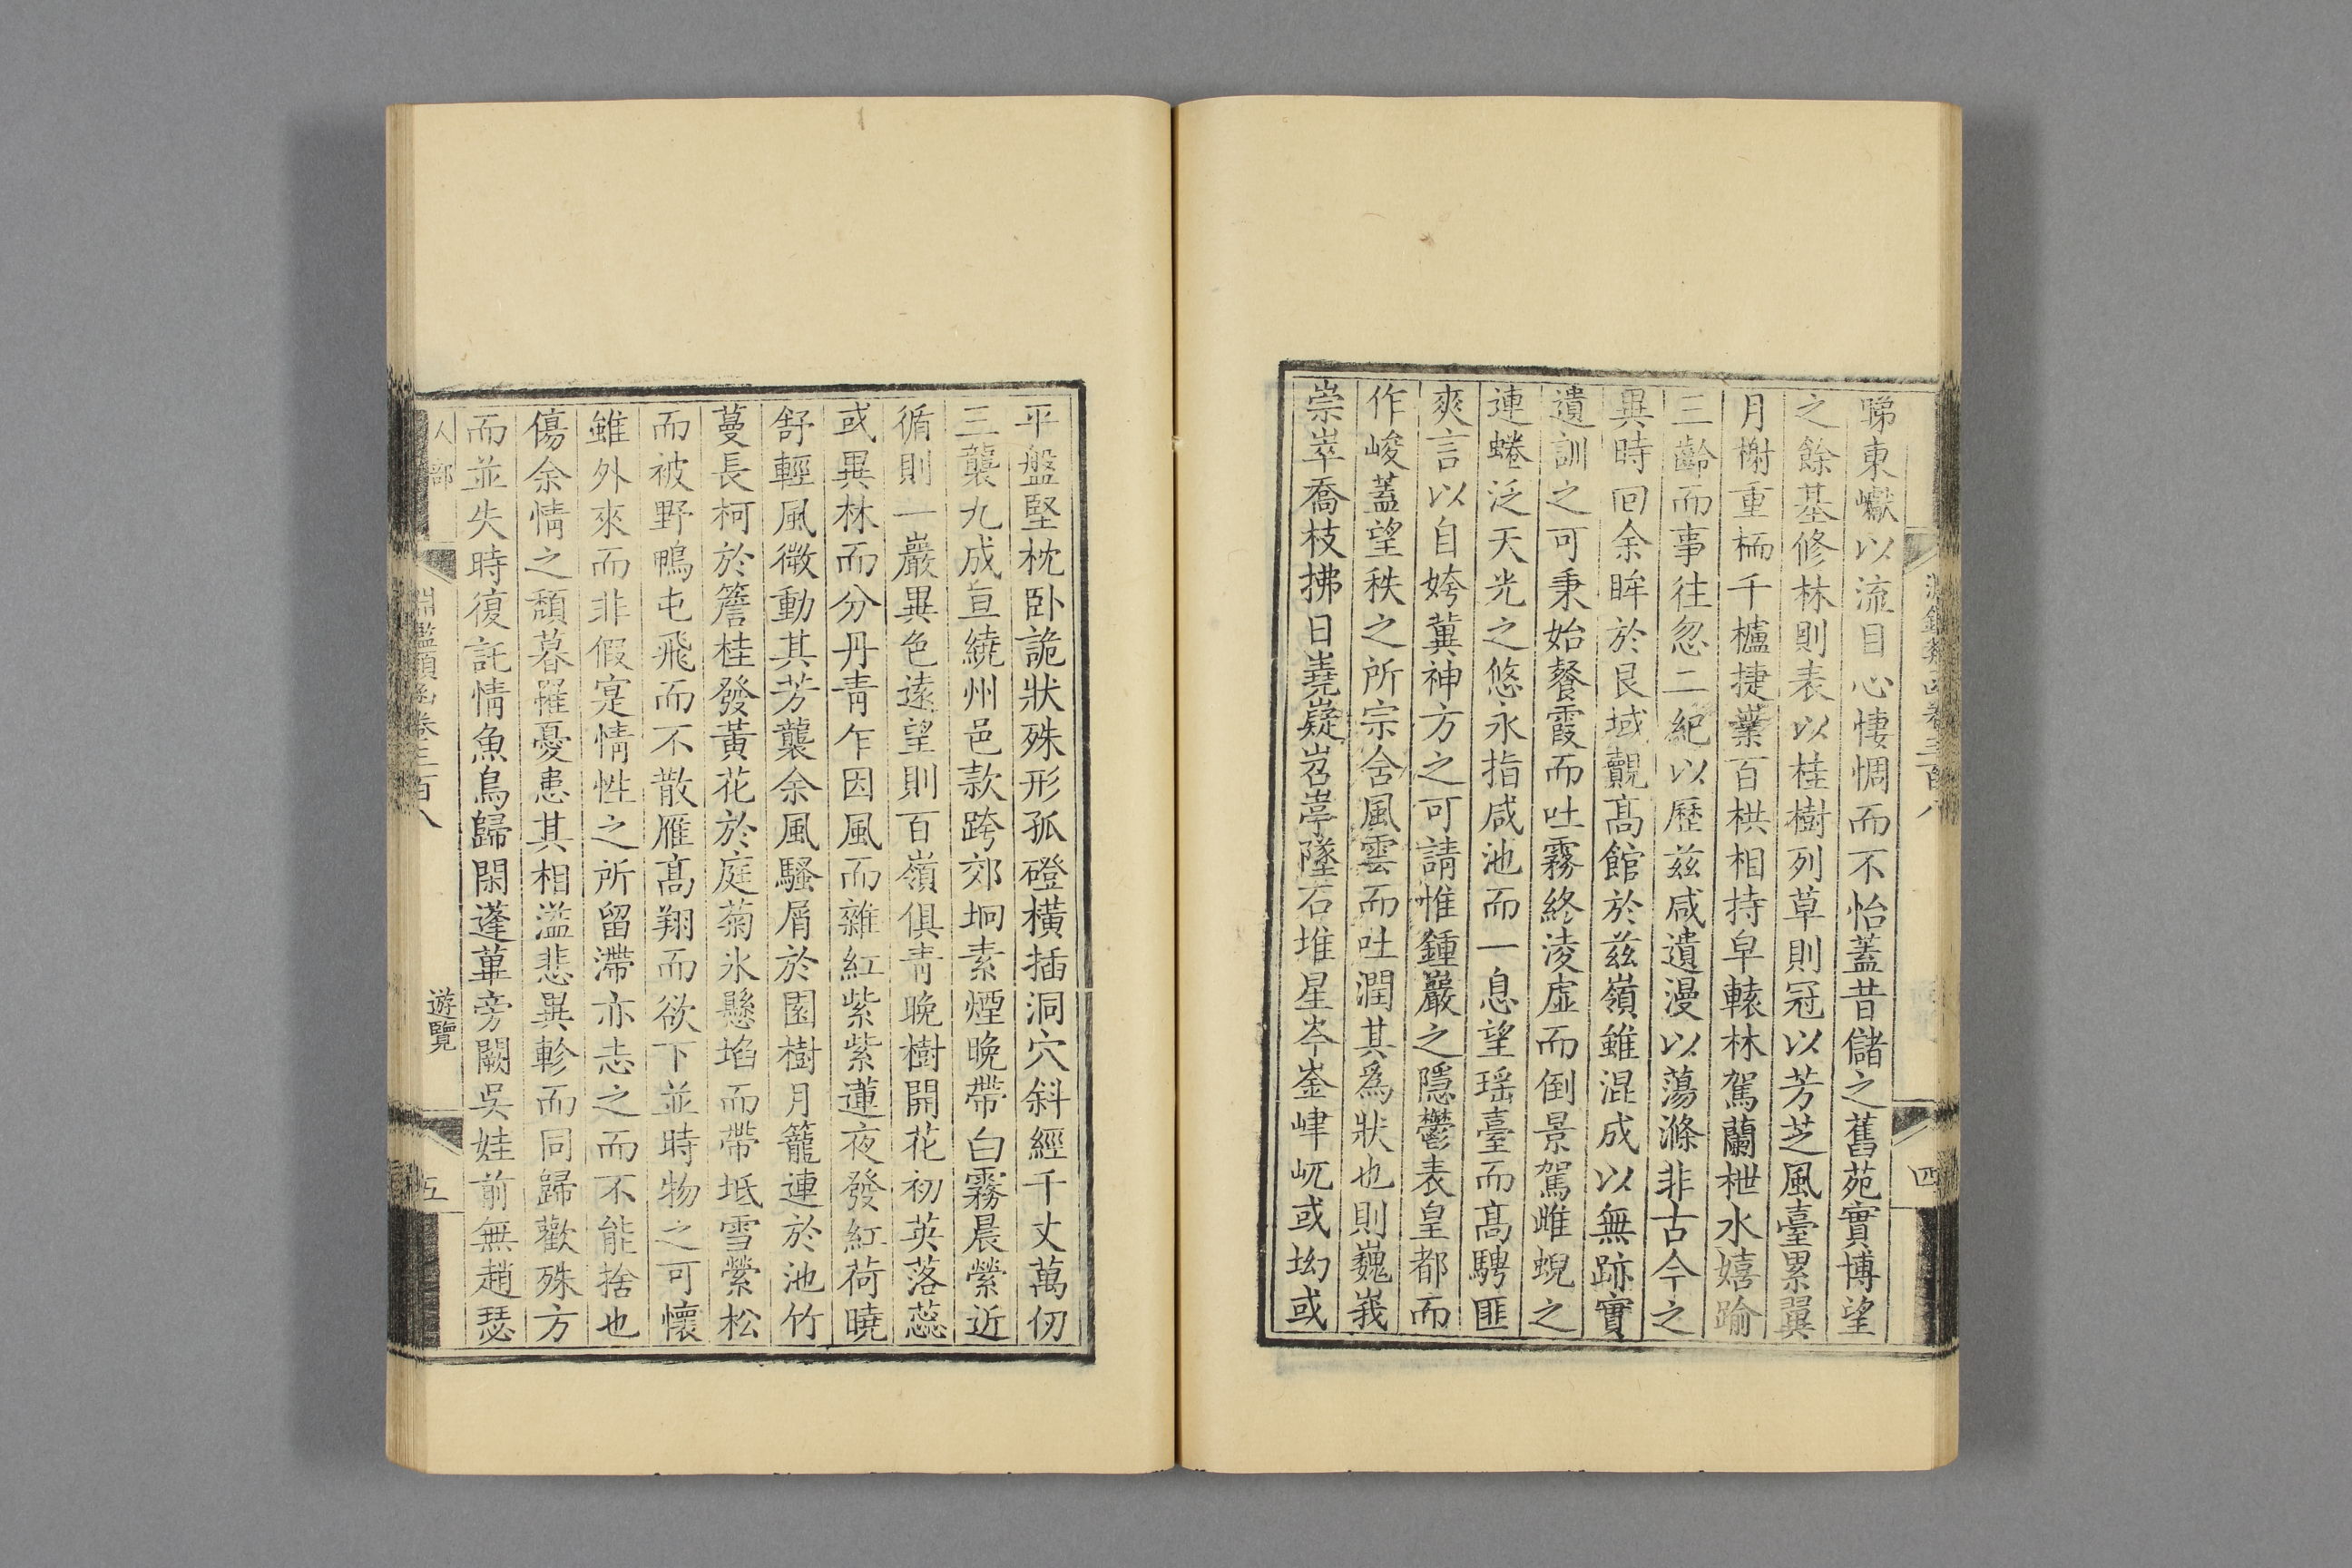 淵鑑類函卷三百八
四
睇東巘以流目心悽惆而不怡蓋昔儲之舊苑實博望
之餘基修林則表以桂樹列草則冠以芳芝風臺累翼
月榭重栭千櫨捷㠍百栱相持皁轅林駕蘭枻水嬉踰
三齡而事往忽二紀以歷茲咸遺漫以蕩滌非古今之
異時回余眸於艮域覿髙館於茲嶺雖混成以無跡實
遺訓之可秉始餐霞而吐霧終淩虛而倒景駕雌蜺之
連蜷泛天光之悠永指咸池而一息望瑶臺而髙騁匪
爽言以自姱冀神方之可請惟鍾巖之隱鬱表皇都而
作峻蓋望秩之所宗含風雲而吐潤其爲狀也則巍峩
崇崒喬枝拂日嶤嶷岧嵉墜石堆星岑崟峍屼或坳或
平盤堅枕卧詭狀殊形孤磴橫插洞穴斜經千丈萬仞
三襲九成亘繞州邑款跨郊坰素煙晚帶白霧晨縈近
循則一巖異色遠望則百嶺俱靑晚樹開花初英落蕊
或異林而分丹靑乍因風而雜紅紫紫蓮夜發紅荷曉
舒輕風微動其芳襲余風騷屑於園樹月籠連於池竹
蔓長柯於簷桂發黃花於庭菊氷懸埳而帶坻雪縈松
而被野鴨屯飛而不散雁髙翔而欲下並時物之可懷
雖外來而非假寔情性之所留滯亦志之而不能捨也
傷余情之頽暮罹憂患其相溢悲異軫而同歸歡殊方
而並失時復託情魚鳥歸閑蓬蓽旁闕吳娃前無趙瑟
人部
淵鑑類函卷三百八
遊覽
五